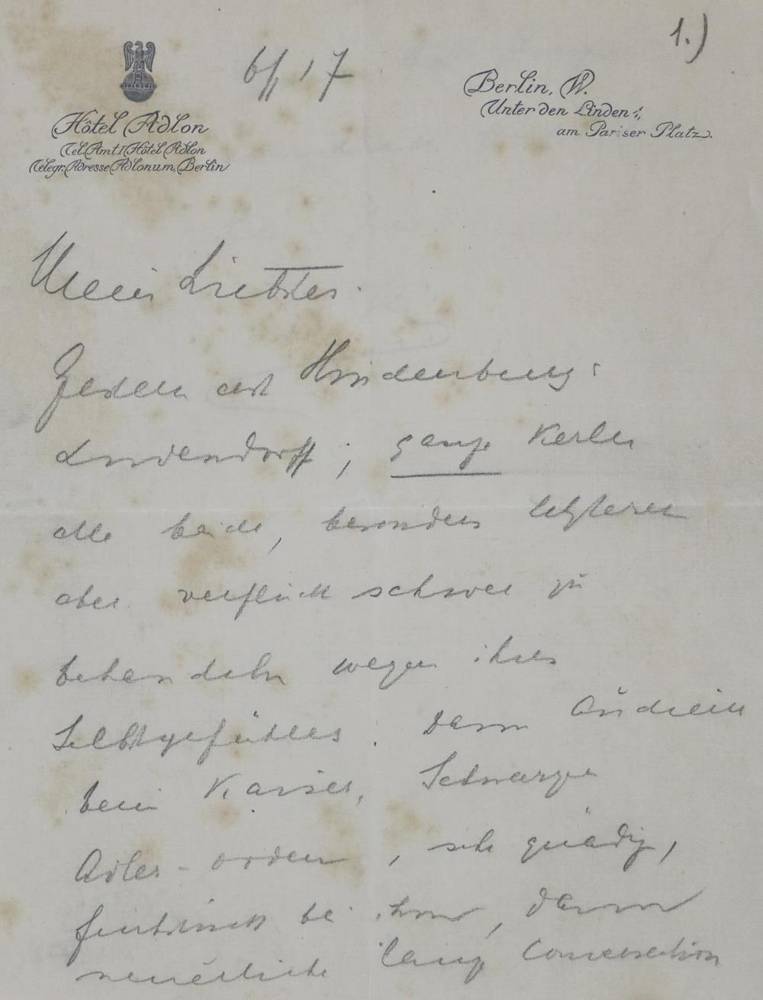 1.)
6/I 17
Hôtel Adlon
Tel. Amt 1 Hôtel Adlon
Telegr. Adresse Adlonum, Berlin
Berlin, W.
Unter den Linden 1,
am Pariser Platz.
Mein Liebster.
Gestern erst Hindenburg
Ludendorff; ganze Kerle
alle beide, besonders letzterer
aber verflucht schwer zu
behandeln wegen ihres
Selbstgefühles. Dann Audienz
beim Kaiser, Schwarzer
Adler-orden, sehr gnädig,
Frühstück bei ihm, dann
neuerliche lange Conversation